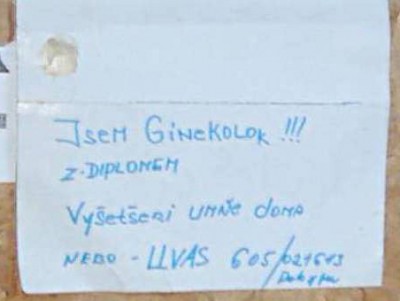 Jsem Ginekolok !!!
Z-DIPLOMEM
Vyšetšeni UMNĚ doma
NEBO - LLVÁS 605/021643